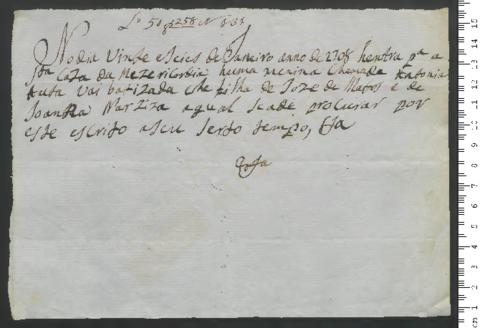 No dia Vinte e seies de Janeiro anno de 1708 hentra pª a
Stª Caza da Mezericordia huma menina Chamada Antonia
esta vai batizada he filha de Joze de Mattos e de
Joanna Narziza a qual se ade procurar por
este escrito a seu serto tempo,